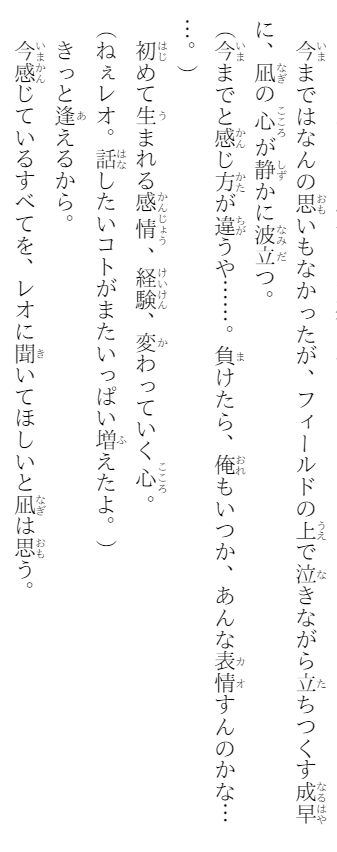 今まではなんの思いもなかったが、フィールドの上で泣きながら立ちつくす成早
に、凪の心が静かに波立つ。
（今までと感じ方が違うや……。負けたら、俺もいつか、あんな表情すんのかな…
…。）
初めて生まれる感情、経験、変わっていく心。
（ねぇレオ。話したいコトがまたいっぱい増えたよ。）
きっと逢えるから。
今感じているすべてを、レオに聞いてほしいと凪は思う。